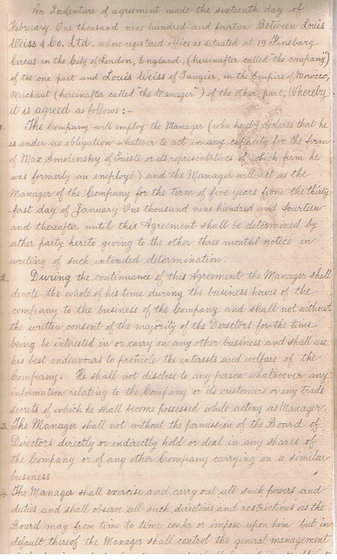 An Indenture of agreement made the sixteenth day of
February One thousand nine hundred and fourteen Between Louis
Weiss & Co. Ltd. whose registered office is situated at 19 Finsbury
Circus in the City of London, England, (hereinafter called "the company")
of the one part and Louis Weiss of Tangier, in the Empire of Morocco,
Merchant (hereinafter called "the Manager") of the other part, Whereby
it is agreed as follows:-
1. The Company will employ the Manager (who hereby declares that he
is under no obligation whatever to act in any capacity for the firm
of Max Smolensky of Trieste or its representatives of which firm he
was formerly an employé) and the Manager will act as the
Manager of the Company for the term of five years from the thirty
first day of January One thousand nine hundred and fourteen
and thereafter until this Agreement shall be determined by
either party hereto giving to the other three months notice in
writing of such intended determination.
2. During the continuance of this Agreement the Manager shall
devote the whole of his time during the business hours of the
company to the business of the Company and shall not without
the written consent of the majority of the Directors for the time
being be interested in or carry on any other business and shall use
his best endeavours to promote the interests and welfare of the
Company. He shall not disclose to any person whatsoever any
information relating to the Company or its customers or any trade
secrets of which he shall become possessed while acting as Manager.
3. The Manager shall not without the permission of the Board of
Directors directly or indirectly hold or deal in any shares of
the Company or of any other Company carrying on a similar
business
4. The Manager shall exercise and carry out all such powers and
duties and shall observe all such directions and restrictions as the
Board may from time to time confer or impose upon him but in
default thereof the Manager shall control the general management